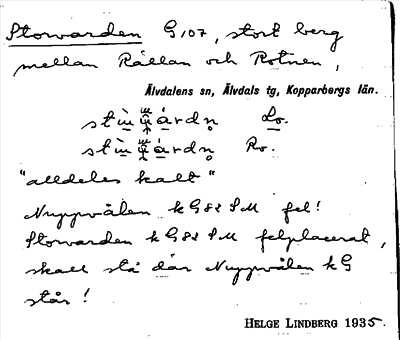 Storvarden G 107, stort berg
mellan Rållan och Rotnen,
Älvdalens sn, Älvdals tg, Kopparbergs län.
Lo.
Ro.
"alldeles kalt"
Nuppvålen k G 82 S M fel!
Storvarden k G 82 S M felplacerat,
skall stå där Nuppvålen k G
står!
HELGE LINDBERG 1935.